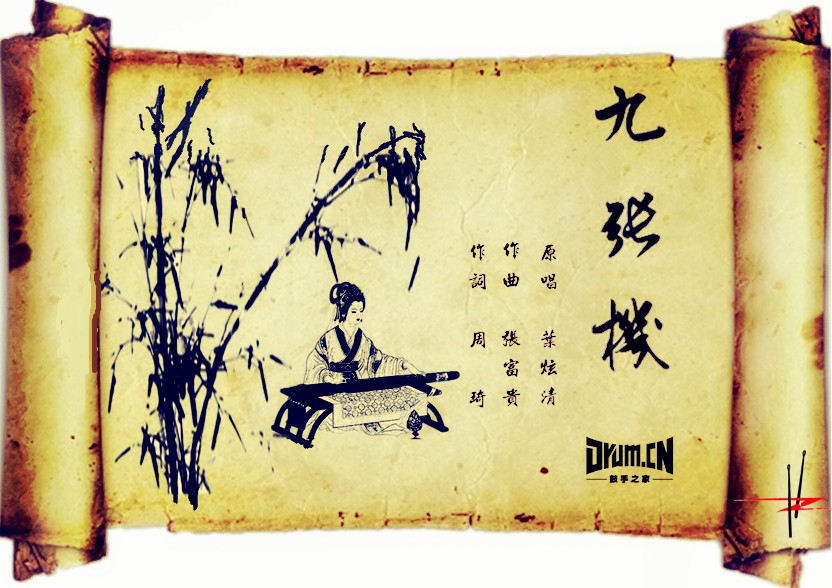 九张機
原唱 葉炫清
作曲 張富貴
作詞 周琦
Drum.CN
鼓手之家